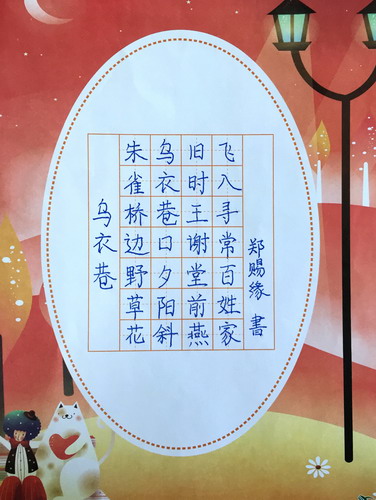 乌衣巷
朱雀桥边野草花
乌衣巷口夕阳斜
旧时王谢堂前燕
飞入寻常百姓家
郑赐缘 書